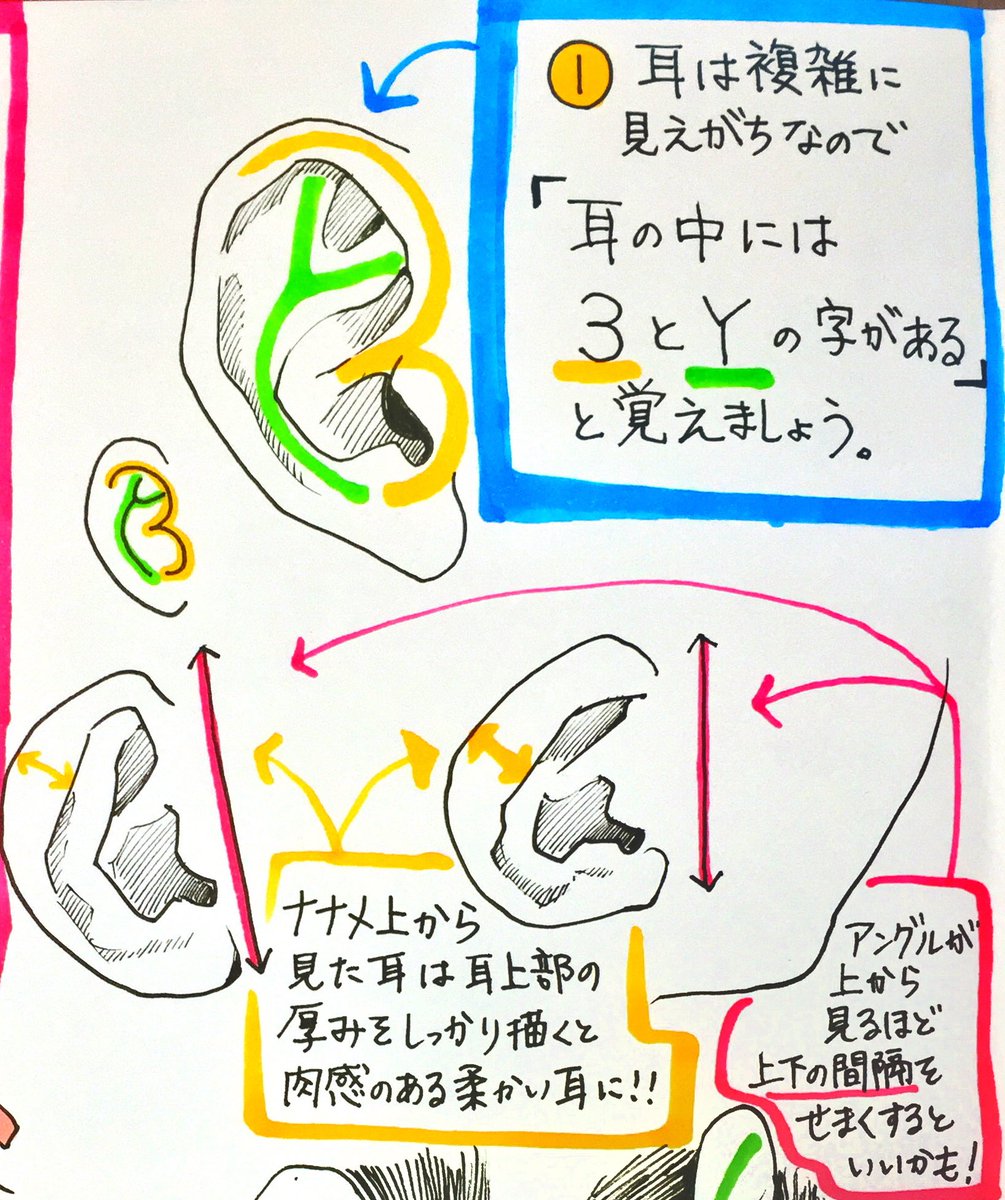 ① 耳は複雑に
見えがちなので
「耳の中には
3とYの字がある」
と覚えましょう。
ナナメ上から
見た耳は耳上部の
厚みをしっかり描くと
肉感のある柔かい耳に!!
アングルが
上から
見るほど
上下の間隔を
せまくすると
いいかも!